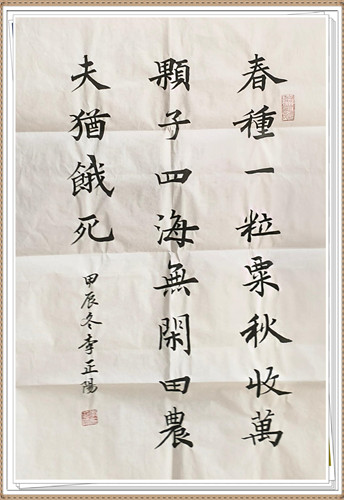 春種一粒粟秋收萬
顆子四海無閑田農
夫猶餓死
甲辰冬李正陽